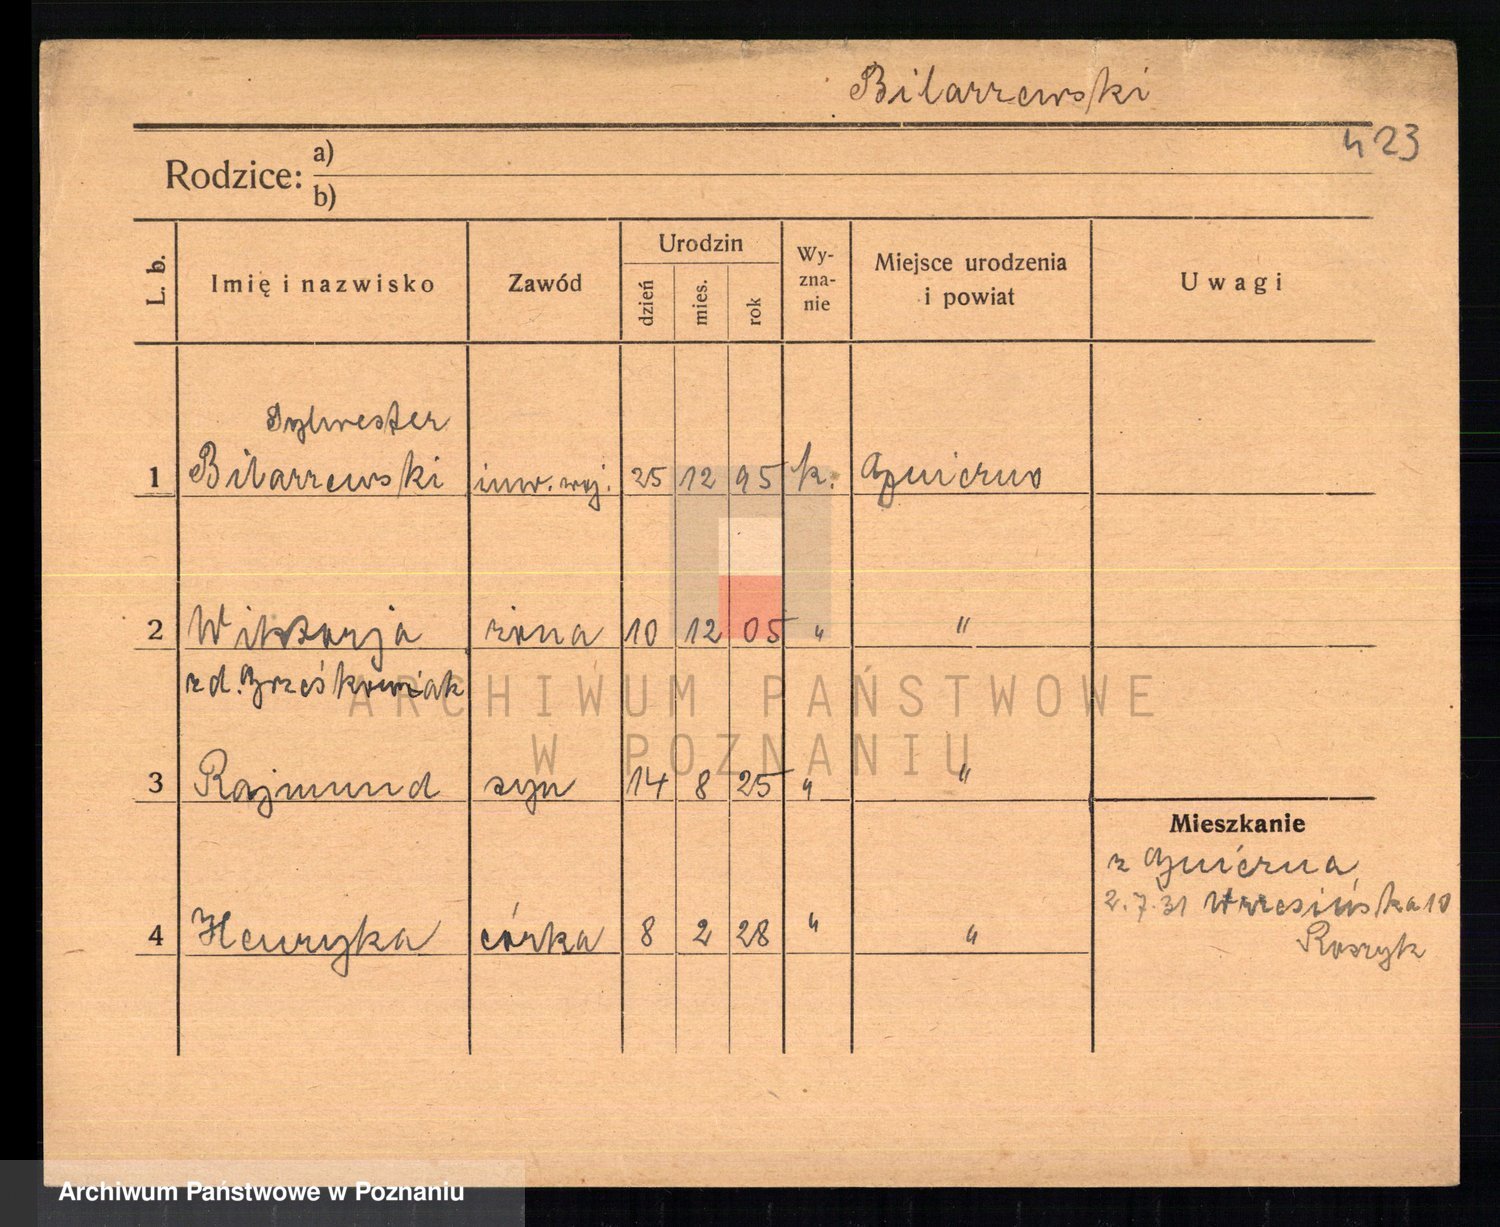 Bilarzewski
423
Rodzice: a)
b)
L. b. Imię i nazwisko Zawód Urodzin dzień mies. rok Wy-zna-nie Miejsce urodzenia i powiat Uwagi
Sylwester
1 Bilarzewski inw. woj. 25 12 95 k. Gniezno
2 Wiktorja żona 10 12 05 " "
zd. Grześkowiak
ARCHIWUM PAŃSTWOWE
W POZNANIU
3 Rajmund syn 14 8 25 " "
Mieszkanie
z Gniezna
2.7.31 Wrzesińska 10
4 Henryka córka 8 2 28 " "
Archiwum Państwowe w Poznaniu